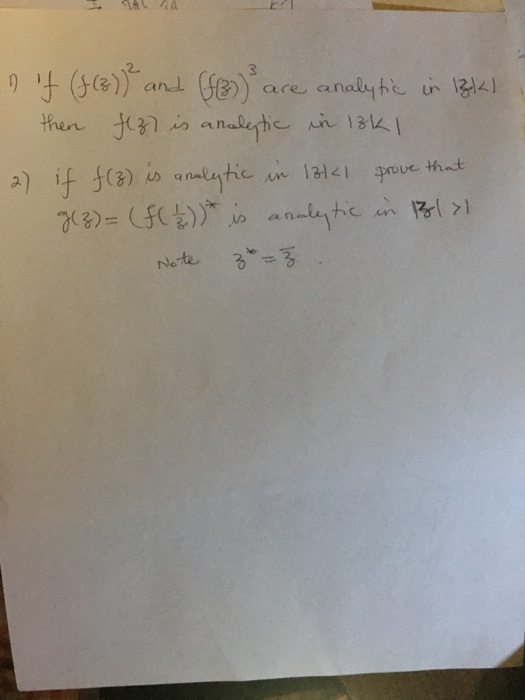 1) if (f(z))² and (f(z))³ are analytic in |z|<1
then f(z) is analytic in |z|<1
2) if f(z) is analytic in |z|<1 prove that
g(z) = (f(1/z))* is analytic in |z|>1
Note z* = z̄.